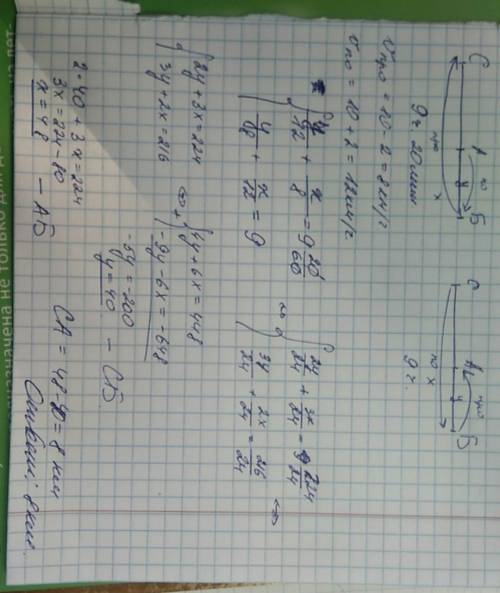 C A по Б
про х
9 ч 20 мин
C A про Б
по х
9 ч.
Vпро = 10 - 2 = 8 км/ч
Vпо = 10 + 2 = 12 км/ч
y/12 + x/8 = 9 20/60
y/8 + x/12 = 9
2y/24 + 3x/24 = 224/24
3y/24 + 2x/24 = 216/24
2y + 3x = 224
3y + 2x = 216
4y + 6x = 448
-9y - 6x = -648
-5y = -200
y = 40 - CБ
2·40 + 3x = 224
3x = 224 - 80
x = 48 - АБ
CA = 48 - 40 = 8 км
Ответ: 8 км.